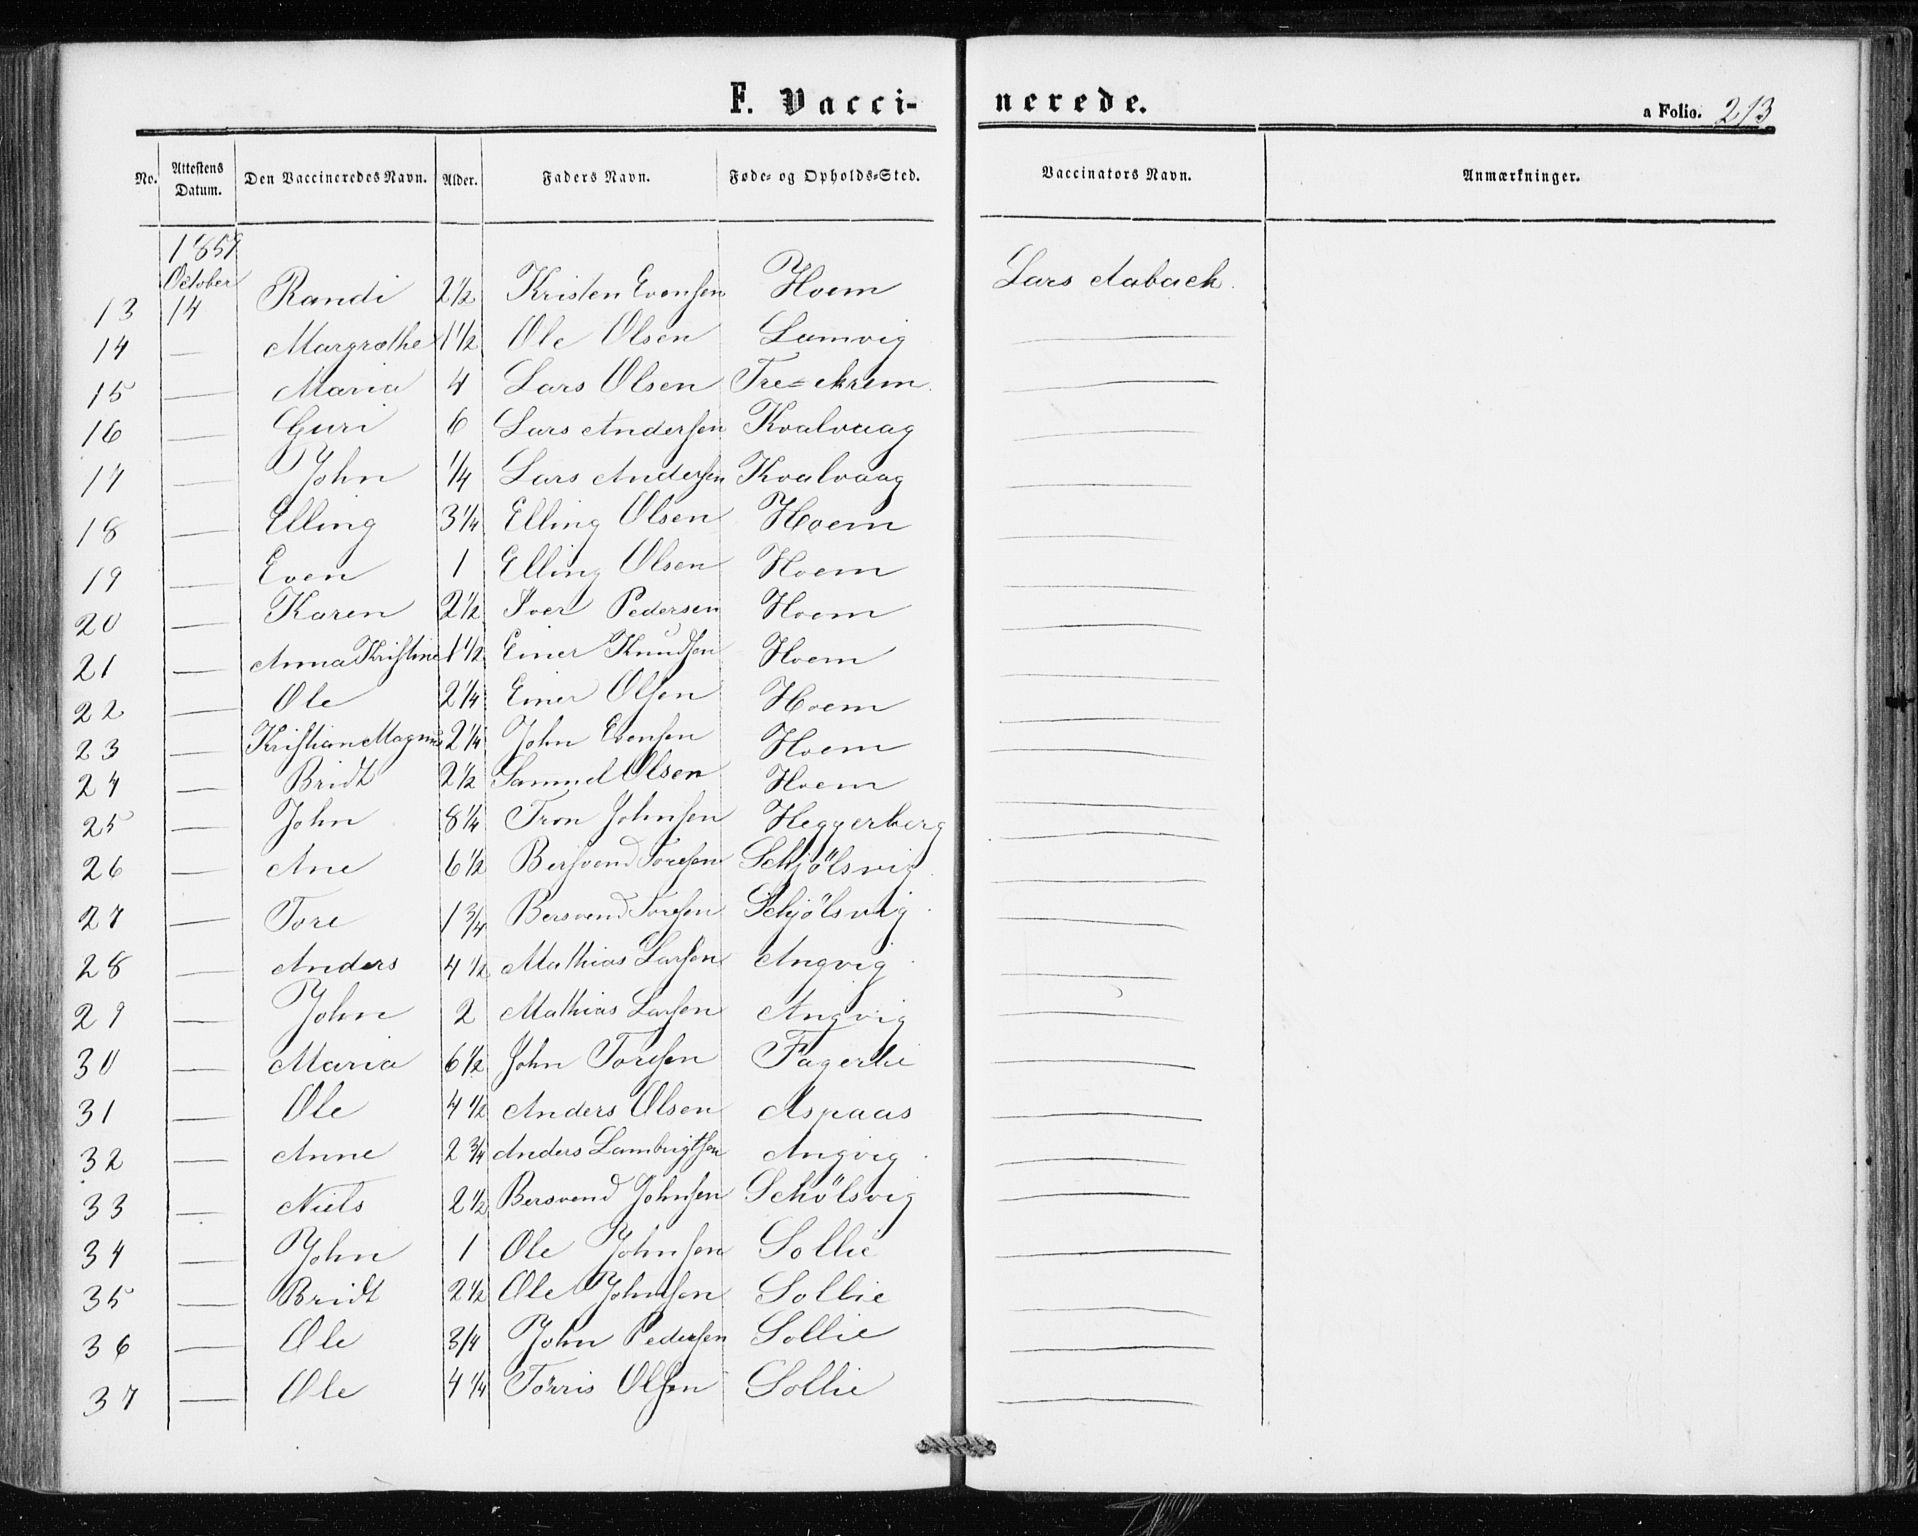 F. Vaccinerede.
a Folio. 213
No. Attestens Datum. Den Vaccineredes Navn. Alder. Faders Navn. Føde- og Opholds-Sted. Vaccinators Navn. Anmærkninger.
1859
October
13 14 Randi 2 1/2 Kristen Evensen Hoem Lars Aaback.
14 — Margrethe 1 1/2 Ole Olsen Lamvig —
15 — Maria 4 Lars Olsen Tre=ekrem. —
16 — Guri 6 Lars Andersen Kvalvaag —
17 — John 1/4 Lars Andersen Kvalvaag —
18 — Elling 3 1/4 Elling Olsen Hoem —
19 — Even 1 Elling Olsen Hoem —
20 — Karen 2 1/2 Iver Pedersen Hoem —
21 — Anna Kristine 1 1/2 Einer Knudsen Hoem —
22 — Ole 2 1/4 Einer Olsen Hoem —
23 — Kristian Magnus 2 1/4 John Evensen Hoem —
24 — Bridt 2 1/2 Samuel Olsen Hoem —
25 — John 8 1/4 Tron Johnsen Heggerberg —
26 — Ane 6 1/2 Bersvend Toresen Schjölsvig. —
27 — Tore 1 3/4 Bersvend Toresen Schjölsvig. —
28 — Anders 4 1/2 Mathias Larsen Angvig. —
29 — John 2 Mathias Larsen Angvig —
30 — Maria 6 1/2 John Toresen Fagerlie —
31 — Ole 4 1/2 Anders Olsen Aspaas —
32 — Anne 2 3/4 Anders Lambrigtsen Angvig. —
33 — Niels 2 1/2 Bersvend Johnsen Schölsvig —
34 — John 1 Ole Johnsen Sollie —
35 — Bridt 2 1/2 Ole Johnsen Sollie —
36 — Ole 3/4 John Pedersen Sollie —
37 — Ole 4 1/4 Törris Olsen Sollie —